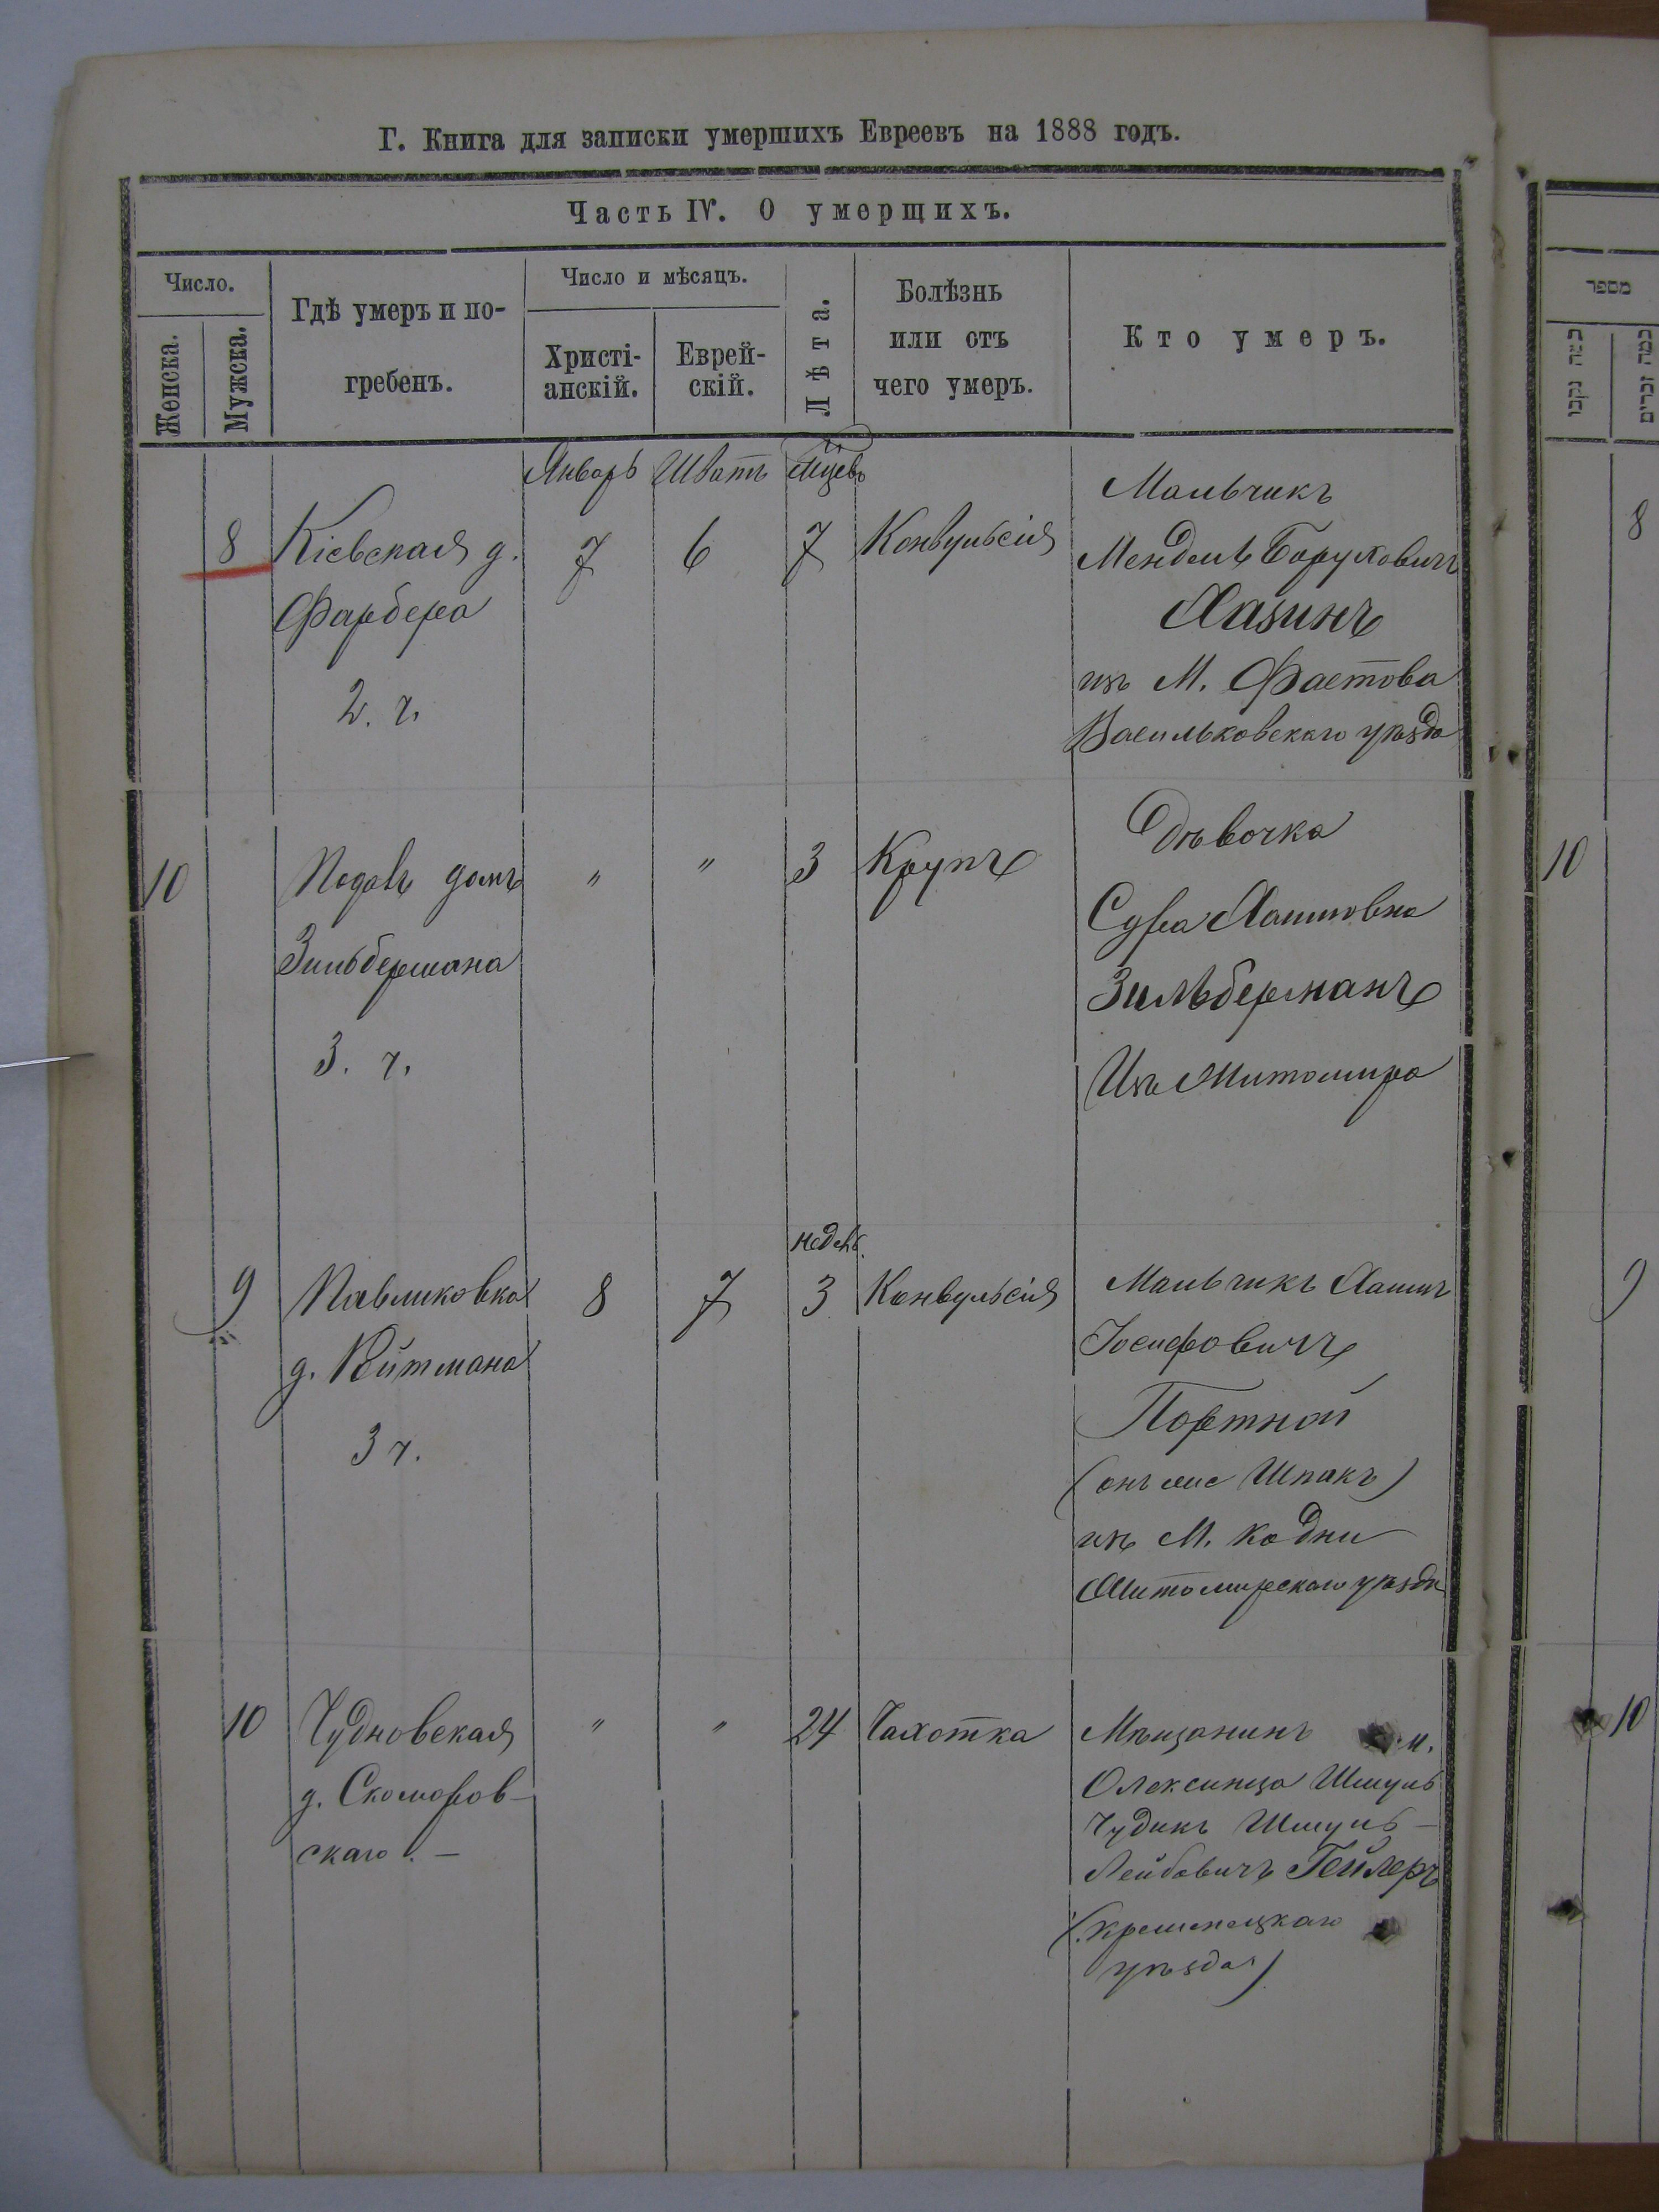 Г. Книга для записки умершихъ Евреевъ на 1888 годъ.
Часть IV. О умерщихъ.
Число.
Женска.
Мужска.
Гдѣ умеръ и по-
гребенъ.
Число и мѣсяцъ.
Христі-
анскій.
Еврей-
скій.
Лѣта.
Болѣзнь
или отъ
чего умеръ.
Кто умеръ.
Январь Шватъ Мцевъ
8 Кіевская д. 7 6 7 Конвульсія
Фарбера
2. ч.
Мальчикъ
Мендель Боруховичъ
Хазинъ
изъ М. Фастова
Васильковскаго уѣзда
10 домъ " " 3 Крупъ
Зильбермана
3. ч.
Дѣвочка
Сура Хаимовна
Зильберманъ
Изъ Житомира
недѣль
9 Павликовка 8 7 3 Конвульсія
д. Войтмана
3 ч.
Мальчикъ Хаимъ
Іосифовичъ
Портной
(онъ же Шпакъ)
изъ М. Кодни
Житомирскаго уѣзда
10 Чудновская " " 24 Чахотка
д. Скоморов-
скаго. —
Мѣщанинъ м.
Олексинца Шмуль
Чудикъ Шмуль-
Лейбовичъ Гейлеръ
(Кременецкаго
уѣзда)
מספר
8
10
9
10